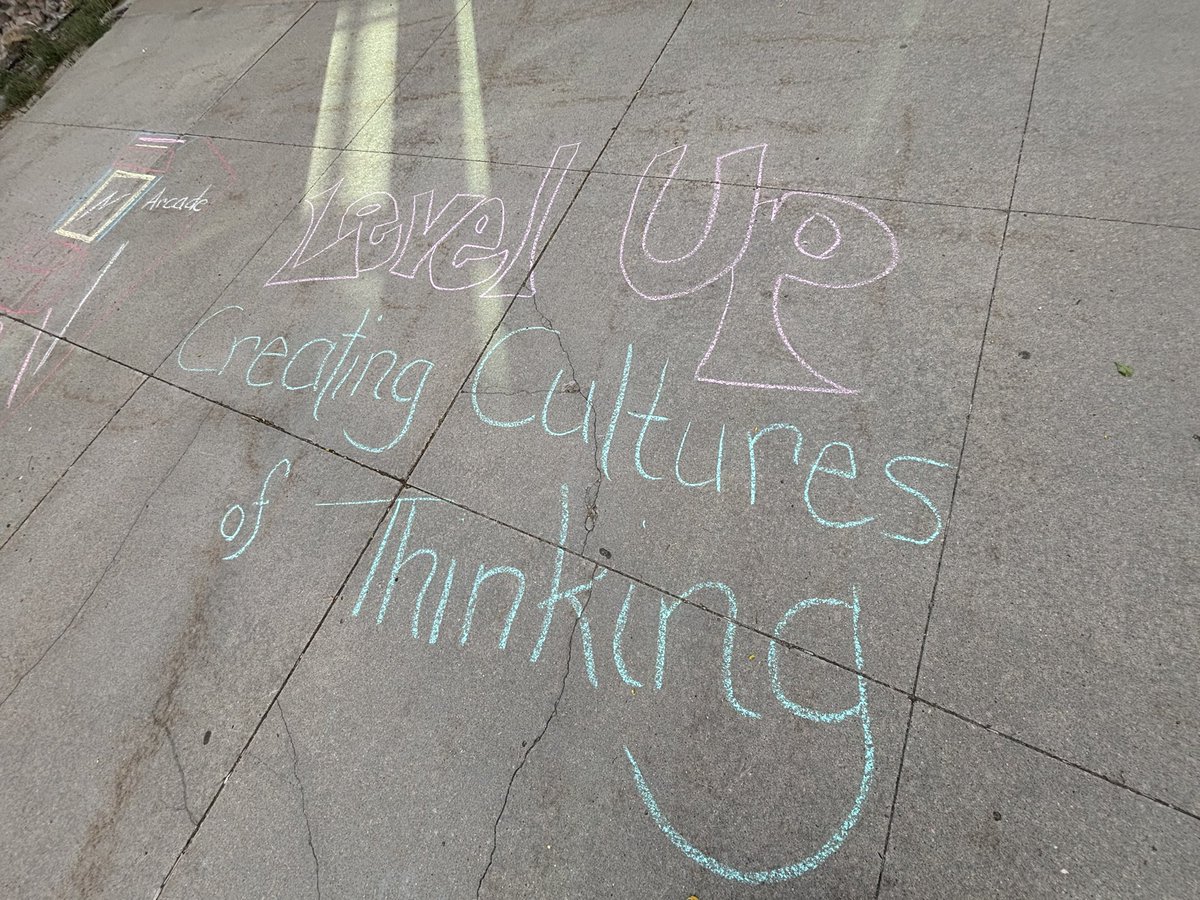 Arcade
Level Up
Creating Cultures
of Thinking